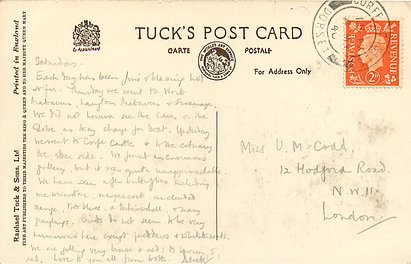 TUCK'S POST CARD
CARTE POSTALE
For Address Only
Printed in England
Raphael Tuck & Sons, Ltd
FINE ART PUBLISHERS TO THEIR MAJESTIES THE KING & QUEEN AND TO HER MAJESTY QUEEN MARY
DORSET
REVENUE
Saturday.
Each day has been fine & blazing hot
& fun. Thursday we went to Worth
Matravers, Langton Matravers & Swanage.
We did not however see the caves, or the
Globe as they charge for boat. Yesterday
we went to Corfe Castle & to the estuary
the other side. We found an enormous
gullery, but it was quite unapproachable
We have seen a few butterflies including
clouded
blues
Birds do not seem to be very
numerous here except jackdaws & whitethroats.
We are getting very brown & red; D. brown
red. Love to you all from both. Derek
Miss U. M. Codd,
12 Hodford Road.
N.W.11.
London